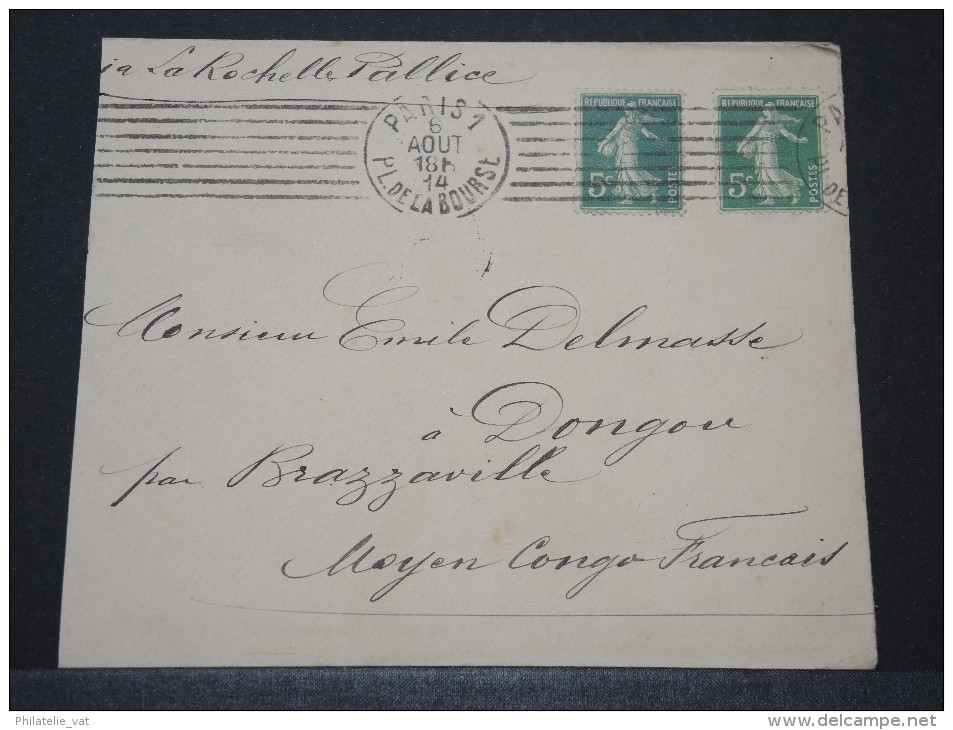 ia La Rochelle Pallice
PARIS 1
6
AOUT
18h
14
PL. DE LA BOURSE
REPUBLIQUE FRANÇAISE
5c
POSTES
REPUBLIQUE FRANÇAISE
5c
POSTES
Monsieur Emile Delmasse
à Dongou
par Brazzaville
Moyen Congo Francais
Philatelie_vat
delcampe.net